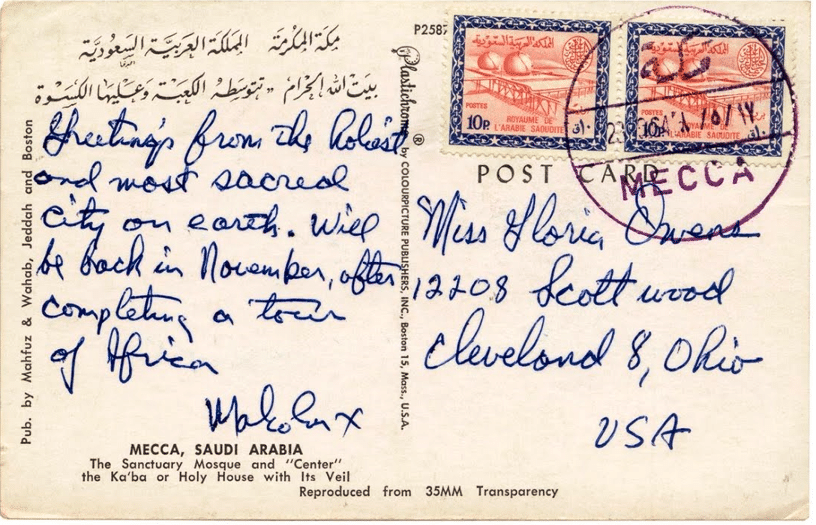 مكة المكرمة المملكة العربية السعودية
بيت الله الحرام - تتوسطه الكعبة وعليها الكسوة
Greetings from the holiest
and most sacred
city on earth. Will
be back in November, after
completing a tour
of Africa
Malcolm X
MECCA, SAUDI ARABIA
The Sanctuary Mosque and "Center"
the Ka'ba or Holy House with Its Veil
Reproduced from 35MM Transparency
Pub. by Mahfuz & Wahab, Jeddah and Boston
Plastichrome ® by COLOURPICTURE PUBLISHERS, INC., Boston 15, Mass., U.S.A.
P2587
المملكة العربية السعودية
POSTES
ROYAUME DE
10P. L'ARABIE SAOUDITE
المملكة العربية السعودية
POSTES
ROYAUME DE
10P. L'ARABIE SAOUDITE
مكة
MECCA
POST CARD
Miss Gloria Owens
12208 Scottwood
Cleveland 8, Ohio
USA